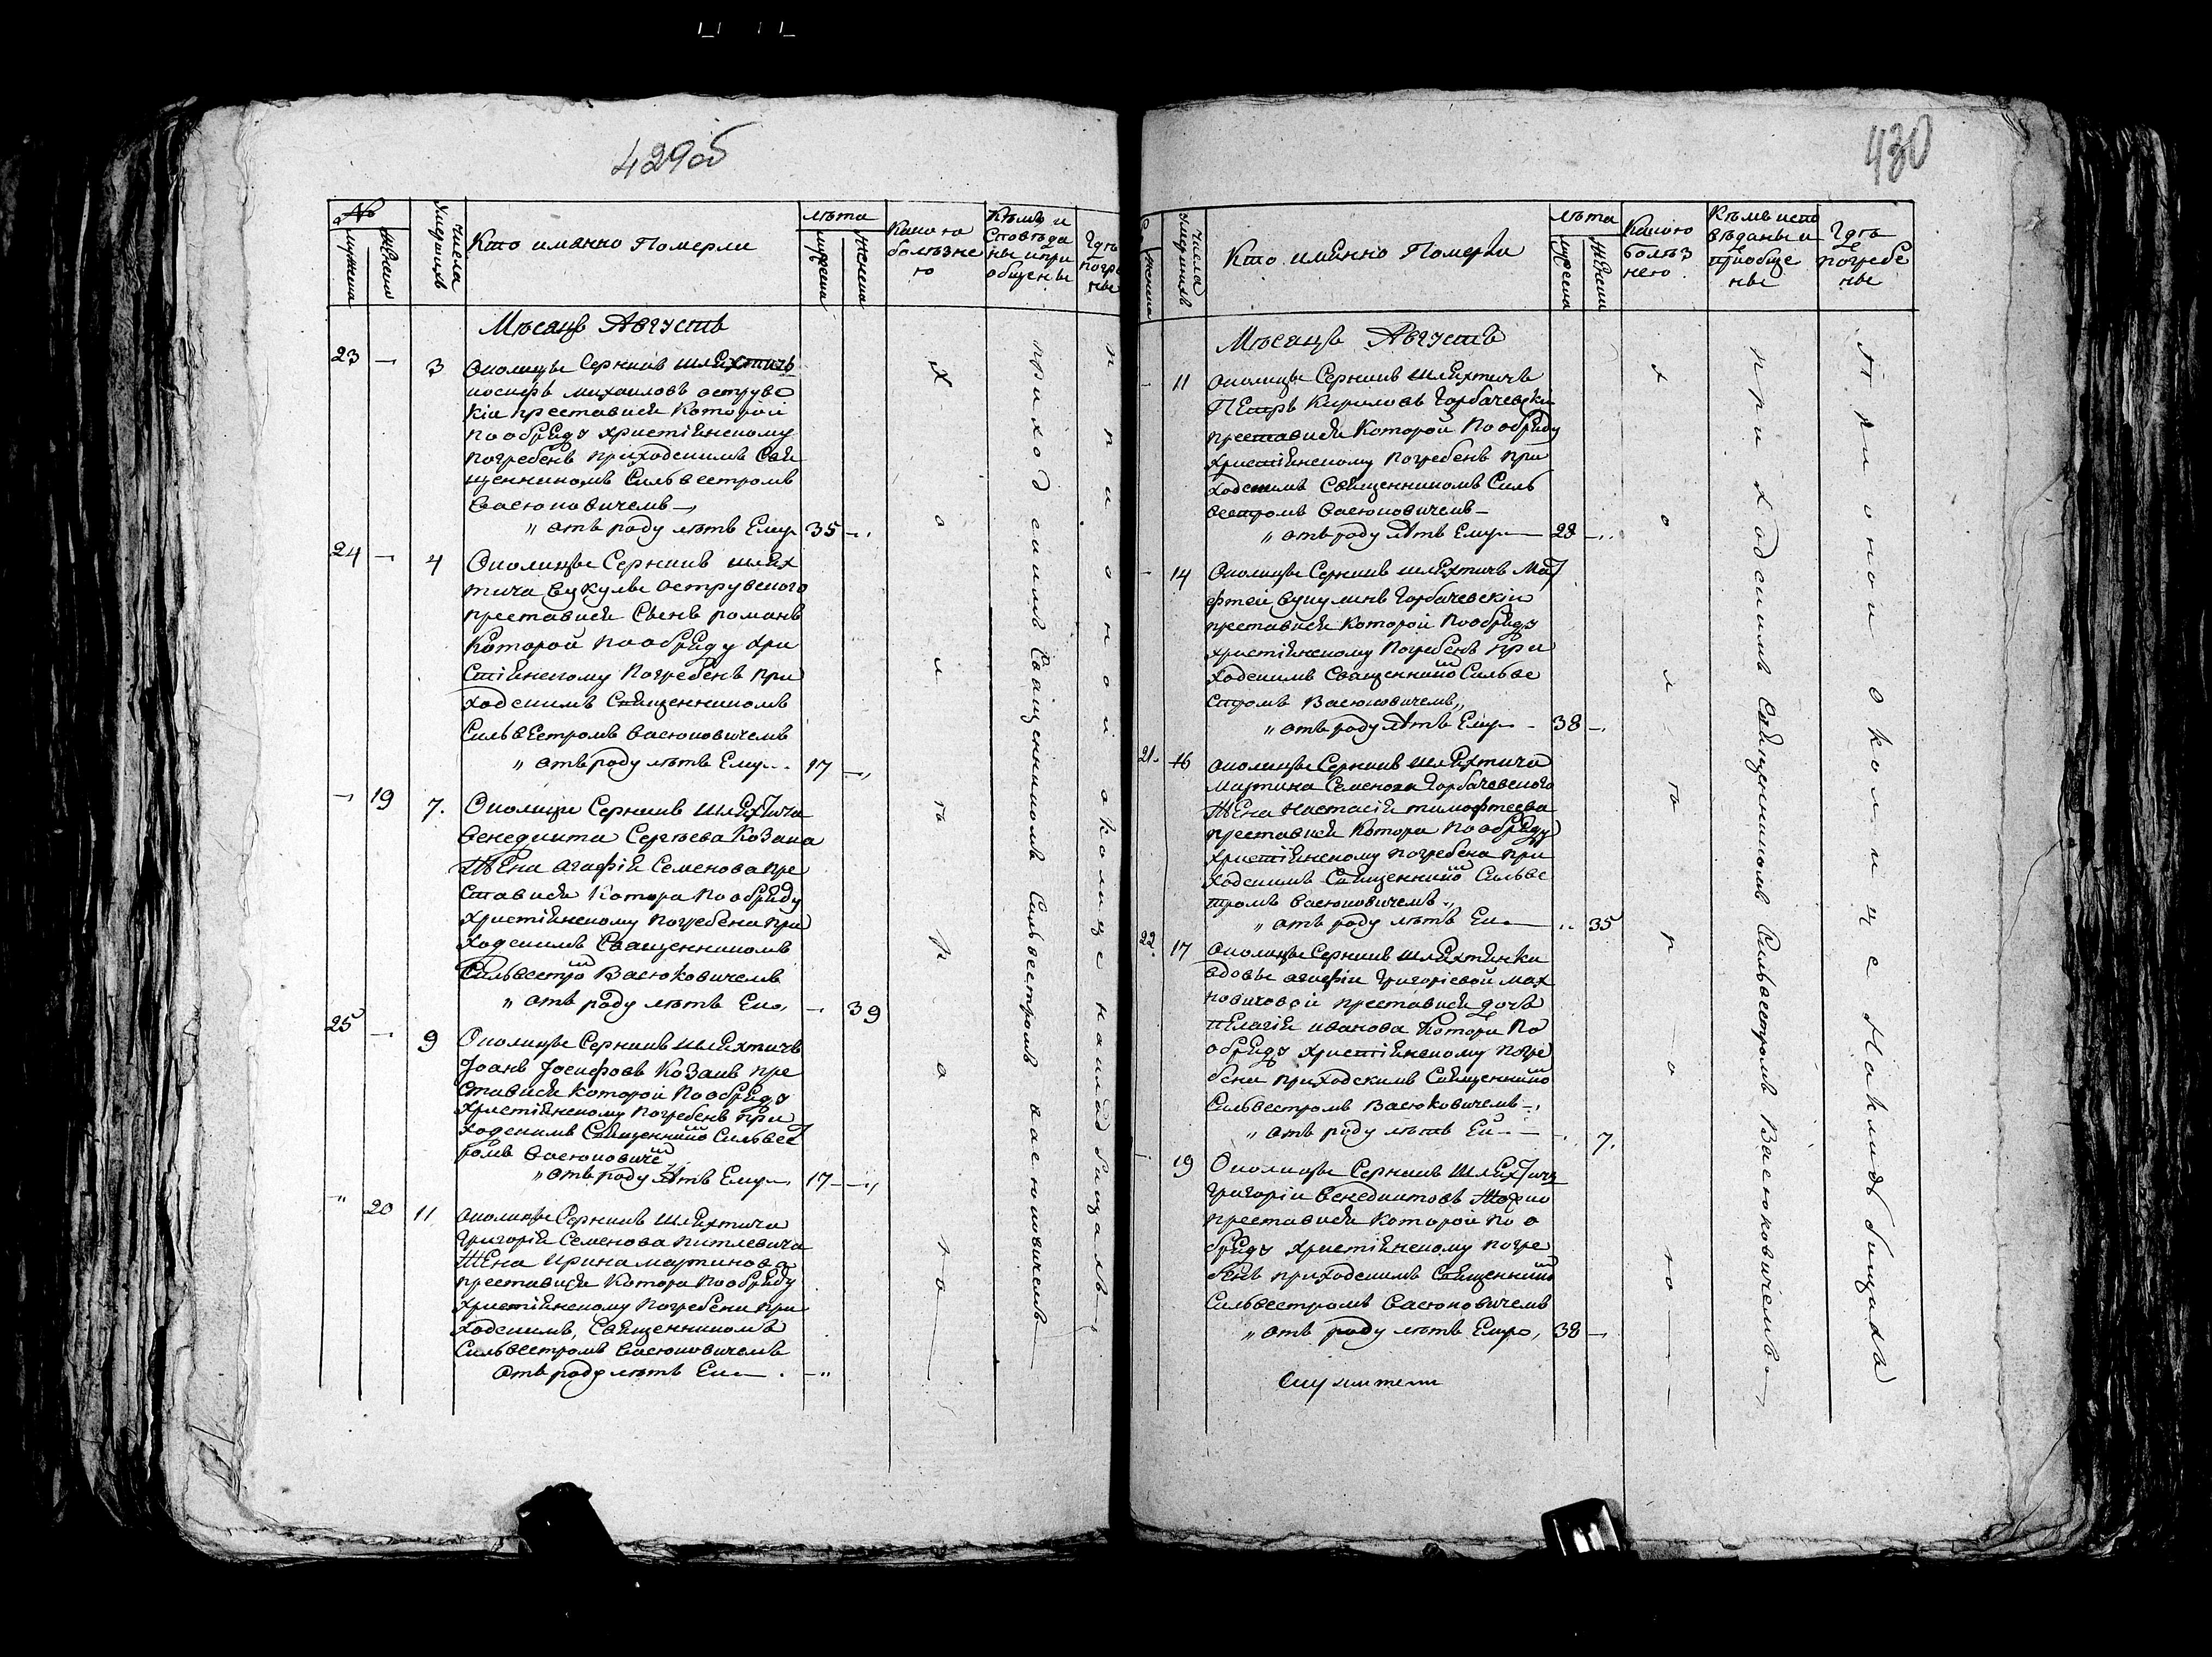 429об
№
мужеска
женска
числа умершихъ
Кто иманно Померли
лѣта
мужеска
женска
Какою болѣзнею
Кѣмъ исповѣданы и приобщены
Гдѣ погребены
Мѣсяцъ Августъ
23 — 3 Околицы Серкшъ шляхтичь
иосифъ михаиловъ оструво
кіи преставися Которой
по обряду христіянскому
погребенъ приходскимъ Свя
щенникомъ Сильвестромъ
Васюковичемъ —
„ отъ роду лѣтъ Ему 35 —
24 — 4 Околицы Серкшъ шлях
тича вукулы островского
преставися Сынъ романъ
Которой по обряду хри
стіянскому Погребенъ при
ходскимъ Священникомъ
Сильвестромъ Васюковичемъ
„ отъ роду лѣтъ Ему 17 —
— 19 7. Околицы Серкшъ шляхтича
венедикта Сергѣева Козака
Жена агафія Семенова пре
ставися Котора по обряду
христіянскому погребена при
ходскимъ Священникомъ
Сильвестро Васюковичемъ
„ отъ роду лѣтъ Еи — 39
25 — 9 Околицы Серкшъ шляхтичъ
Іоанъ Іосифовъ Козакъ пре
ставися Которой по обряду
христіянскому погребенъ при
ходскимъ Священнико Сильвест
ромъ Васюковиче
„ отъ роду лѣтъ Ему 17 —
„ 20 11 Околицы Серкшъ шляхтича
Григорія Семенова питлевича
Жена Ирина мартинова
преставися Котора по обряду
христіянскому Погребена при
ходскимъ, Священникомъ
Сильвестромъ Васюковичемъ
Отъ роду лѣтъ Еи —
Холѣрою
приходскимъ Священникомъ Сильвестромъ Васюковичемъ
при оной околице на кладбищахъ
430
числа умершихъ
Кто имянно Померли
лѣта
мужеска
женска
Какою болѣзнею
Кѣмъ исповѣданы и приобщены
Гдѣ погребены
Мѣсяцъ Августъ
— 11 Околицы Серкшъ шляхтичъ
Петръ Кириловъ Горбачевски
преставися Которой По обряду
христіянскому погребенъ при
ходскимъ Священникомъ Силь
вестромъ Васюковичемъ —
„ отъ роду лѣтъ Ему — 28 —
— 14 Околицы Серкшъ шляхтичъ Мат
фтей вукулинъ Горбачевскіи
преставися Которои По обряду
христіянскому Погребенъ при
ходскимъ Священнико Сильве
стромъ Васюковичемъ„
„ отъ роду лѣтъ Ему — 38 —
21. 16 Околицы Серкшъ шляхтича
мартина Семенова Горбачевского
Жена настасія тимофтеева
преставися Котора по обряду
христіянскому погребена при
ходскимъ Священнико Сильве
тромъ Васюковичемъ„
„ отъ роду лѣтъ Еи — 35
22. 17 Околицы Серкшъ шляхтянки
вдовы агафіи Григоріевой мах
новичовой преставися дочъ
пелагія иванова Котора По
обряду христіянскому погре
бена приходскимъ Священнико
Сильвестромъ Васюковичемъ —
„ отъ роду лѣтъ Еи — 7.
— 19 Околицы Серкшъ шляхтичъ
Григоріи Венедиктовъ
преставися Которой по о
бряду христіянскому погре
бенъ приходскимъ Священнико
Сильвестромъ Васюковичемъ
„ отъ роду лѣтъ Ему, 38 —
холѣрою
приходскимъ Священникомъ Сильвестромъ Васюковичемъ
При оной Околице На кладбищахъ